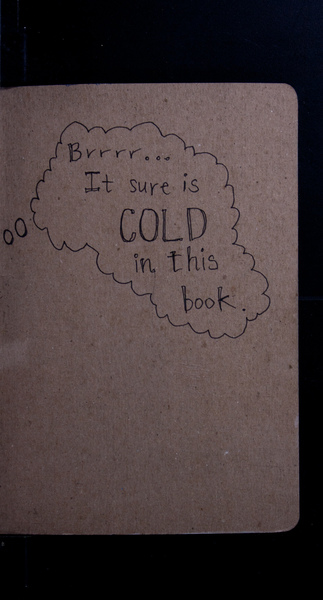 Brrrr...
It sure is
COLD
in this
book.